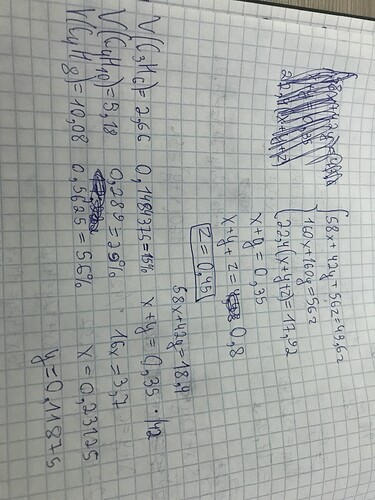 58x + 42y + 56z = 43,6г
160x + 160y = 56г
22,4(x+y+z) = 17,92
x+y = 0,35
x+y+z = 0,8
z = 0,45
58x+42y=18,4
x+y=0,35 · 42
16x = 3,7
x = 0,23125
y = 0,11875
V(C3H6) = 2,66 0,1484375=15%
V(C4H10) = 5,18 0,289=29%
V(C4H8) = 10,08 0,5625=56%